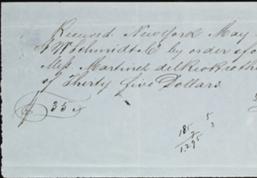 Received New York May
of W Schmidt & Co by order of
Mess Martinez del Rio Brothe
of Thirty five Dollars
$ 35
185
7
1.295
5
3